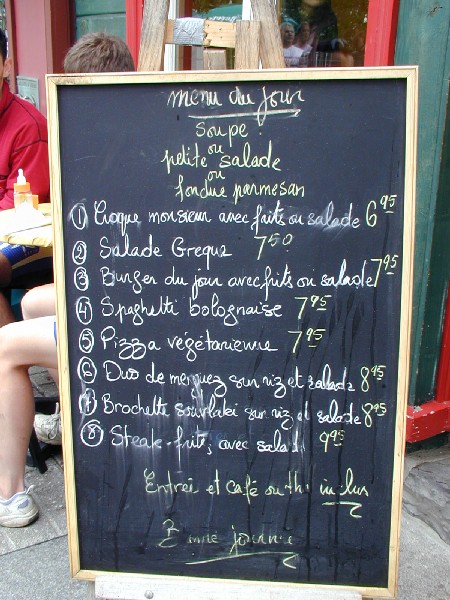 menu du jour
soupe
ou
petite salade
ou
fondue parmesan
① Croque monsieur avec frits ou salade 6 95
② Salade Grecque 7 50
③ Burger du jour avec frits ou salade 7 95
④ Spaghetti bolognaise 7 95
⑤ Pizza végétarienne 7 95
⑥ Duo de merguez sur riz et salade 8 95
⑦ Brochette souvlaki sur riz et salade 8 95
⑧ Steak-frits, avec salade 9 95
Entrée et café ou thé inclus
Bonne journée